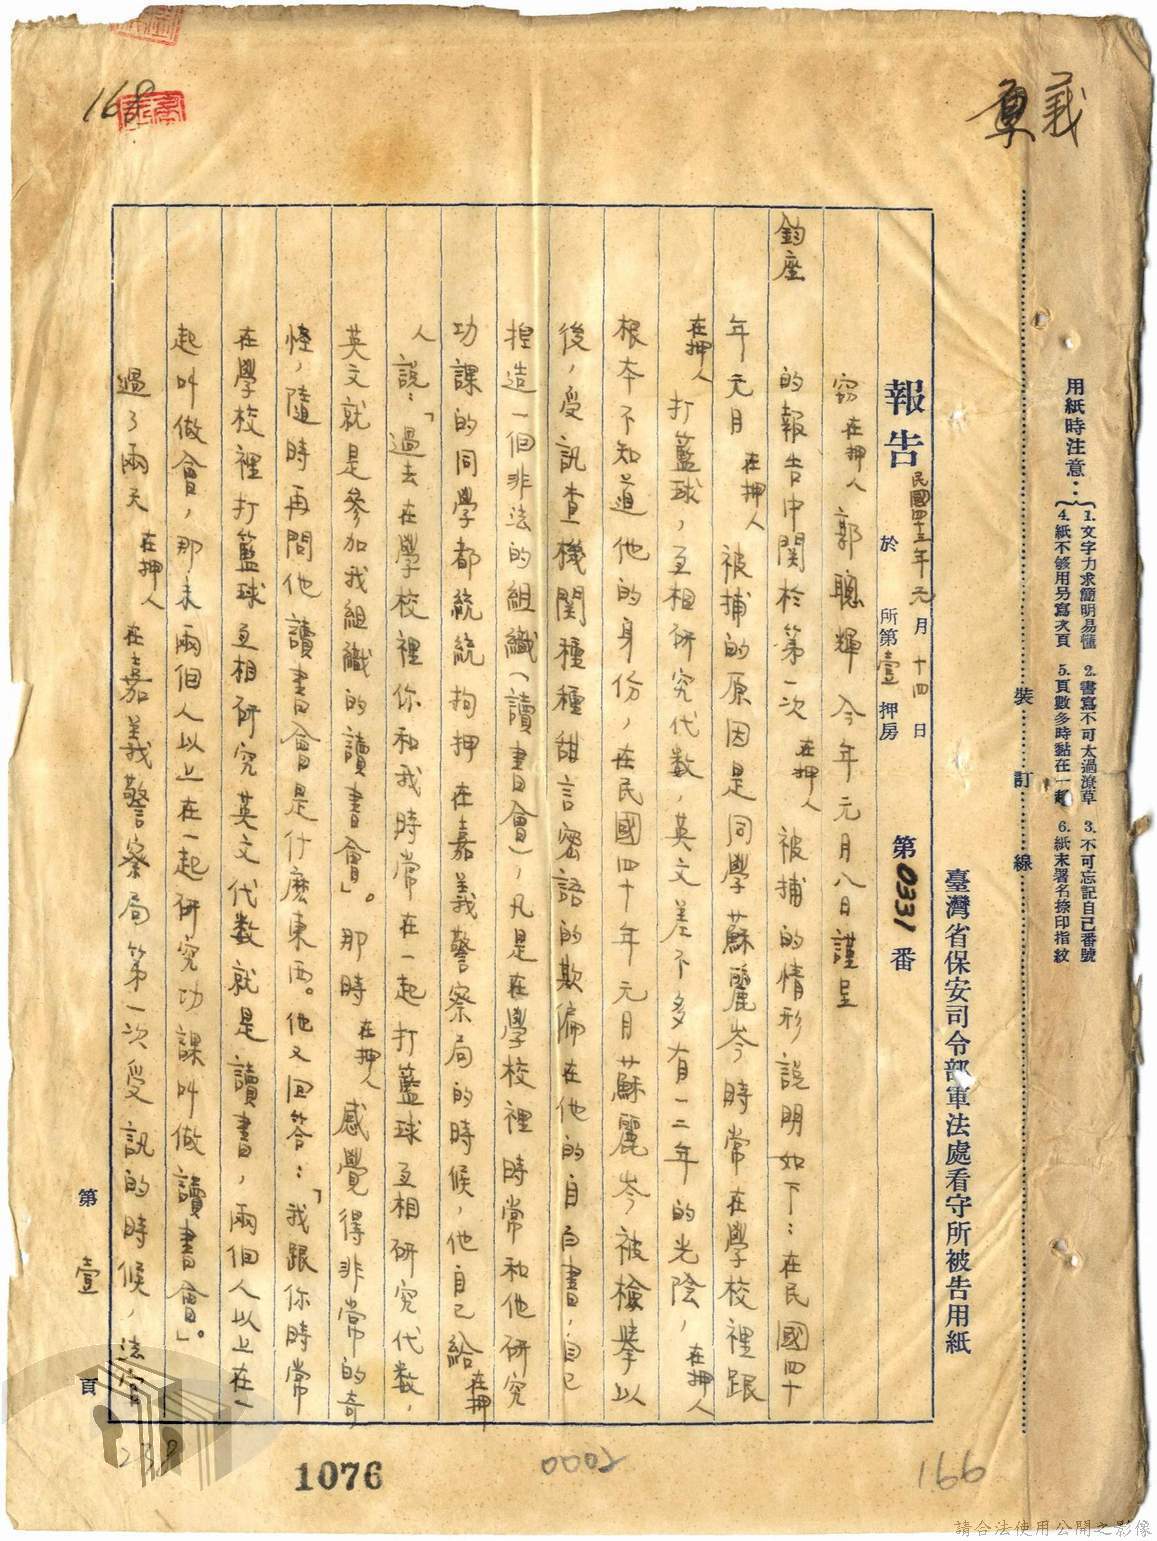 168
義
用紙時注意：
1. 文字力求簡明易懂 2. 書寫不可太過潦草 3. 不可忘記自己番號
4. 紙不够用另寫次頁 5. 頁數多時黏在一起 6. 紙末署名捺印指紋
裝訂線
臺灣省保安司令部軍法處看守所被告用紙
報告 民國四十五年元月十四日 於 所第壹押房 第0331番
窃在押人郭聰輝今年元月八日謹呈
鈞座
的報告中関於第一次在押人被捕的情形説明如下：在民國四十
年元月在押人被捕的原因是同學蘇麗岑時常在學校裡跟
在押人打藍球，互相研究代数，英文差不多有一二年的光陰，在押人
根本不知道他的身份，在民國四十年元月蘇麗岑被檢舉以
後，受訊查機関種種甜言密語的欺偏在他的自白書，自己
捏造一個非法的組織（讀書會），凡是在學校裡時常和他研究
功課的同學都統統拘押在嘉義警察局的時候，他自己給在押
人説：「過去在學校裡你和我時常在一起打藍球互相研究代数，
英文就是參加我組織的讀書會」。那時在押人感覺得非常的奇
怪，隨時再問他讀書會是什麽東西。他又回答：「我跟你時常
在學校裡打籃球互相研究英文代数就是讀書，兩個人以上在一
起叫做會，那末兩個人以上在一起研究功課叫做讀書會」。
過了兩天在押人在嘉義警察局第一次受訊的時候，法官
第壹頁
238
1076
0002
166
請合法使用公開之影像